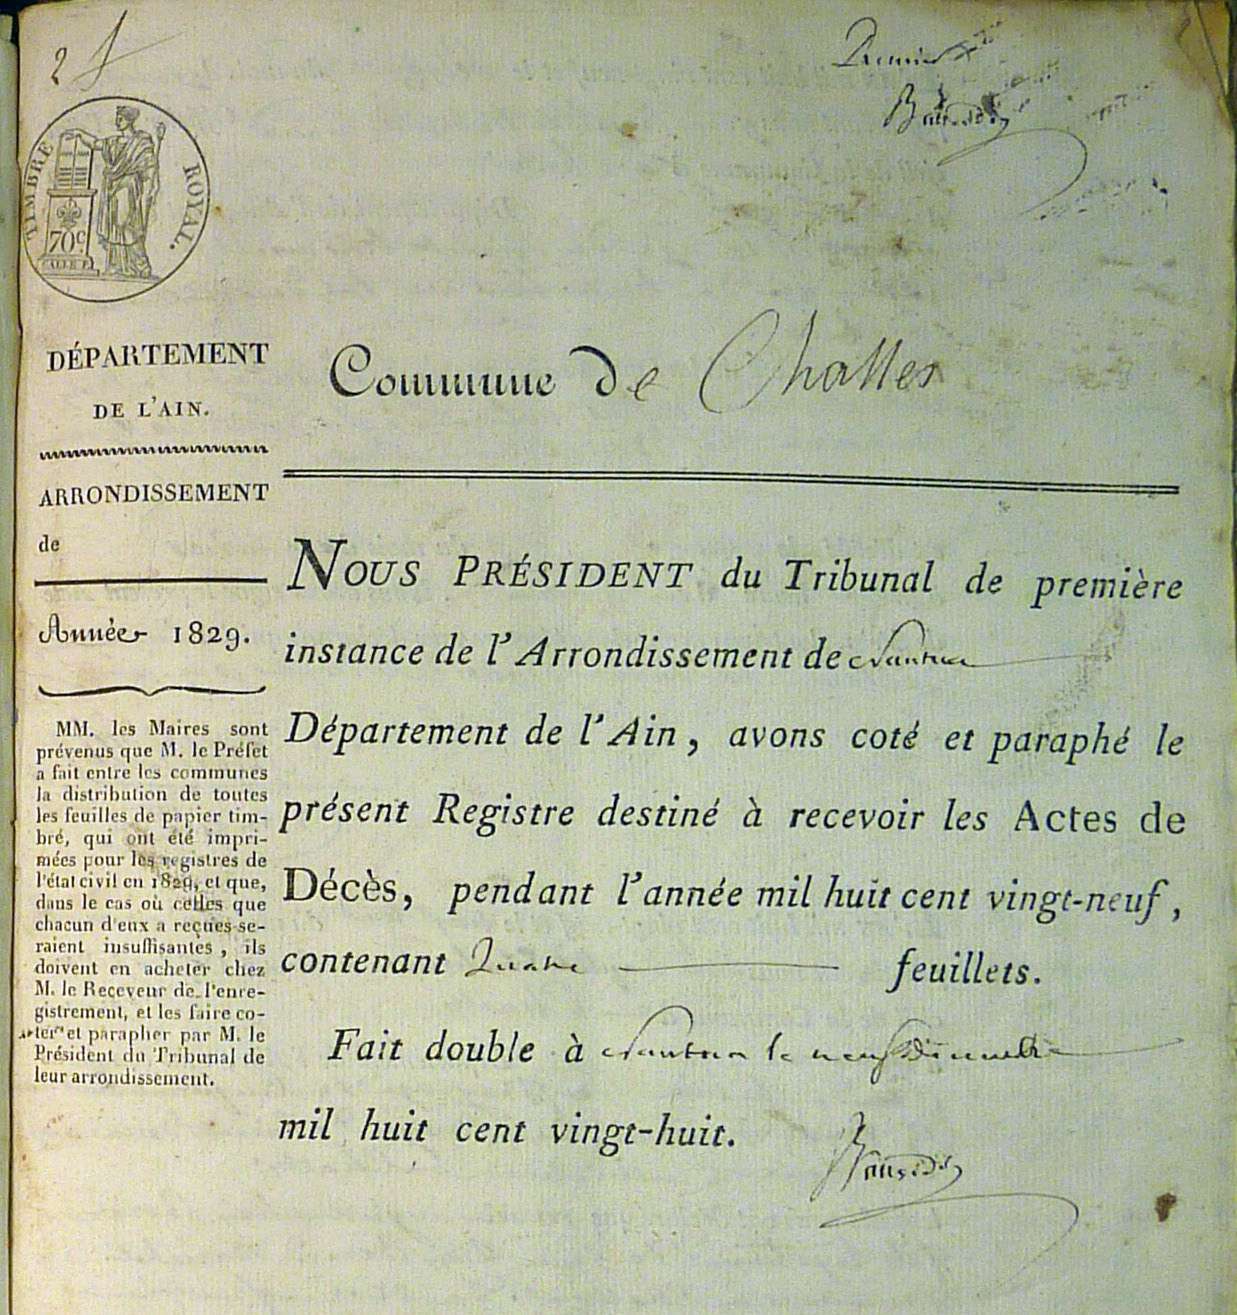 2 f
Premier
TIMBRE ROYAL.
70c
DÉPARTEMENT
DE L'AIN.
ARRONDISSEMENT
de
Année 1829.
MM. les Maires sont
prévenus que M. le Préfet
a fait entre les communes
la distribution de toutes
les feuilles de papier tim-
bré, qui ont été impri-
mées pour les registres de
l'état civil en 1829, et que,
dans le cas où celles que
chacun d'eux a reçues se-
raient insuffisantes, ils
doivent en acheter chez
M. le Receveur de l'enre-
gistrement, et les faire co-
ter et parapher par M. le
Président du Tribunal de
leur arrondissement.
Commune de Challes
NOUS PRÉSIDENT du Tribunal de première
instance de l'Arrondissement de Nantua
Département de l'Ain, avons coté et paraphé le
présent Registre destiné à recevoir les Actes de
Décès, pendant l'année mil huit cent vingt-neuf,
contenant Quatre feuillets.
Fait double à Nantua le neuf Décembre
mil huit cent vingt-huit.